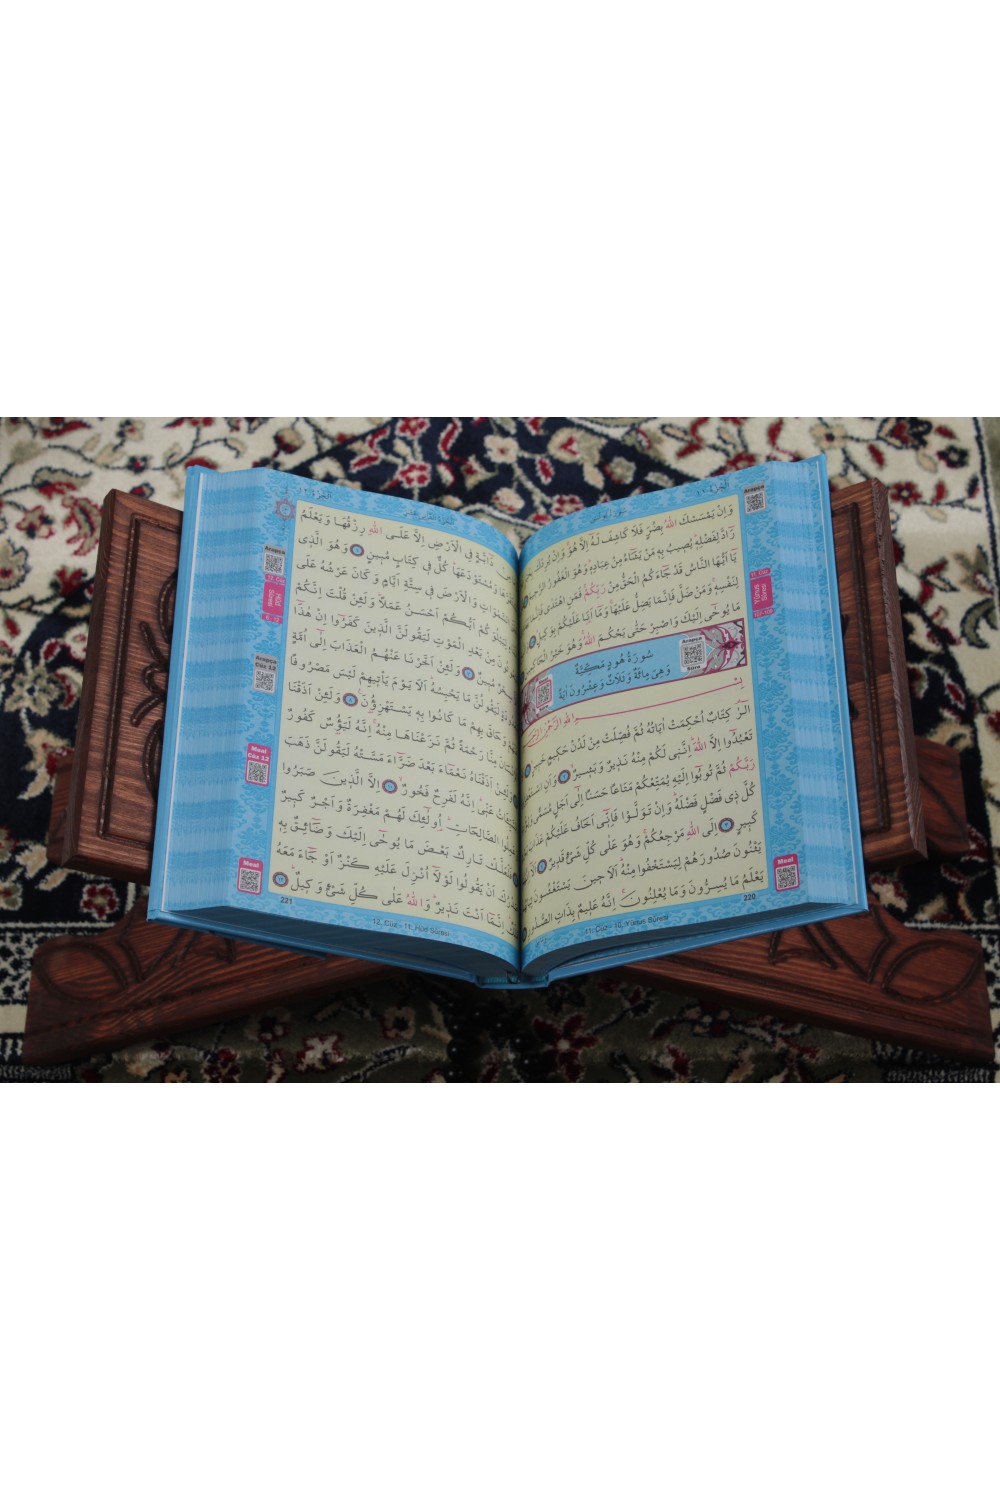 الجزء ١١
Arapça
وَاِنْ يَمْسَسْكَ اللّٰهُ بِضُرٍّ فَلَا كَاشِفَ لَهُ اِلَّا هُوَ وَاِنْ يُرِدْكَ
رَٓادَّ لِفَضْلِهِ يُصِيبُ بِهِ مَنْ يَشَٓاءُ مِنْ عِبَادِهِ وَهُوَ الْغَفُورُ الرَّحِيمُ
يَٓا اَيُّهَا النَّاسُ قَدْ جَٓاءَكُمُ الْحَقُّ مِنْ رَبِّكُمْ فَمَنِ اهْتَدٰى فَاِنَّمَا
لِنَفْسِهِ وَمَنْ ضَلَّ فَاِنَّمَا يَضِلُّ عَلَيْهَا وَمَٓا اَنَا عَلَيْكُمْ بِوَكِيلٍ
مَا يُوحٰٓى اِلَيْكَ وَاصْبِرْ حَتّٰى يَحْكُمَ اللّٰهُ وَهُوَ خَيْرُ
11. Cüz
Yûnus Sûresi
107-109
سُورَةُ هُودٍ مَكِّيَّةٌ
وَهِيَ مِائَةٌ وَثَلَاثٌ وَعِشْرُونَ اٰيَةً
Arapça
Sûre
بِسْمِ اللّٰهِ الرَّحْمٰنِ الرَّحِيمِ
الٓرٰ كِتَابٌ اُحْكِمَتْ اٰيَاتُهُ ثُمَّ فُصِّلَتْ مِنْ لَدُنْ حَكِيمٍ خَبِيرٍ
تَعْبُدُٓوا اِلَّا اللّٰهَ اِنَّنِي لَكُمْ مِنْهُ نَذِيرٌ وَبَشِيرٌ ٢ وَاَنِ
رَبَّكُمْ ثُمَّ تُوبُٓوا اِلَيْهِ يُمَتِّعْكُمْ مَتَاعًا حَسَنًا اِلٰٓى اَجَلٍ مُسَمًّى
كُلَّ ذِي فَضْلٍ فَضْلَهُ وَاِنْ تَوَلَّوْا فَاِنِّٓي اَخَافُ عَلَيْكُمْ عَذَابَ
كَبِيرٍ ٣ اِلَى اللّٰهِ مَرْجِعُكُمْ وَهُوَ عَلٰى كُلِّ شَيْءٍ قَدِيرٌ ٤
يَثْنُونَ صُدُورَهُمْ لِيَسْتَخْفُوا مِنْهُ اَلَا حِينَ يَسْتَغْشُونَ ثِيَابَهُمْ
يَعْلَمُ مَا يُسِرُّونَ وَمَا يُعْلِنُونَ اِنَّهُ عَلِيمٌ بِذَاتِ الصُّدُورِ
Meal
220
11. Cüz - 10. Yûnus Sûresi
الجزء ١٢
دَٓابَّةٍ فِي الْاَرْضِ اِلَّا عَلَى اللّٰهِ رِزْقُهَا وَيَعْلَمُ
وَمُسْتَوْدَعَهَا كُلٌّ فِي كِتَابٍ مُبِينٍ ٦ وَهُوَ الَّذِي
السَّمٰوَاتِ وَالْاَرْضَ فِي سِتَّةِ اَيَّامٍ وَكَانَ عَرْشُهُ عَلَى
لِيَبْلُوَكُمْ اَيُّكُمْ اَحْسَنُ عَمَلًا وَلَئِنْ قُلْتَ اِنَّكُمْ
مِنْ بَعْدِ الْمَوْتِ لَيَقُولَنَّ الَّذِينَ كَفَرُٓوا اِنْ هٰذَٓا
مُبِينٌ ٧ وَلَئِنْ اَخَّرْنَا عَنْهُمُ الْعَذَابَ اِلٰٓى اُمَّةٍ
لَيَقُولُنَّ مَا يَحْبِسُهُ اَلَا يَوْمَ يَأْتِيهِمْ لَيْسَ مَصْرُوفًا
وَحَاقَ بِهِمْ مَا كَانُوا بِهِ يَسْتَهْزِؤُنَ ٨ وَلَئِنْ اَذَقْنَا
مِنَّا رَحْمَةً ثُمَّ نَزَعْنَاهَا مِنْهُ اِنَّهُ لَيَؤُسٌ كَفُورٌ
اَذَقْنَاهُ نَعْمَٓاءَ بَعْدَ ضَرَّٓاءَ مَسَّتْهُ لَيَقُولَنَّ ذَهَبَ
عَنِّي اِنَّهُ لَفَرِحٌ فَخُورٌ ١٠ اِلَّا الَّذِينَ صَبَرُوا
الصَّالِحَاتِ اُولٰٓئِكَ لَهُمْ مَغْفِرَةٌ وَاَجْرٌ كَبِيرٌ
فَلَعَلَّكَ تَارِكٌ بَعْضَ مَا يُوحٰٓى اِلَيْكَ وَضَٓائِقٌ بِهِ
صَدْرُكَ اَنْ يَقُولُوا لَوْلَٓا اُنْزِلَ عَلَيْهِ كَنْزٌ اَوْ جَٓاءَ مَعَهُ
اِنَّمَٓا اَنْتَ نَذِيرٌ وَاللّٰهُ عَلٰى كُلِّ شَيْءٍ وَكِيلٌ ١٢
Arapça
12. Cüz
Hûd Sûresi
6-12
Arapça
Cüz 12
Meal
Cüz 12
Meal
221
12. Cüz - 11. Hûd Sûresi